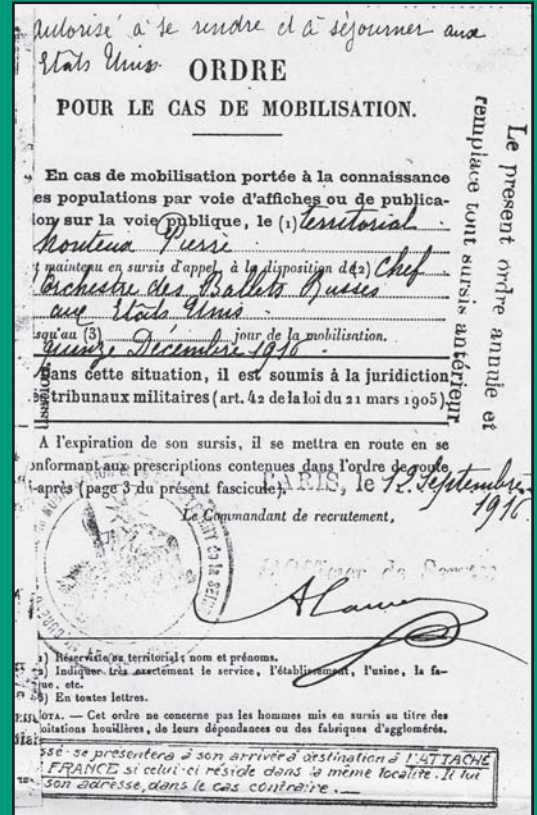 autorisé à se rendre et à séjourner aux
Etats Unis.
ORDRE
POUR LE CAS DE MOBILISATION.
En cas de mobilisation portée à la connaissance
es populations par voie d'affiches ou de publica-
ion sur la voie publique, le (1) territorial
Monteux Pierre
maintenu en sursis d'appel, à la disposition d (2) Chef
Orchestre des Ballets Russes
aux Etats Unis
squ'au (3) jour de la mobilisation.
quinze Décembre 1916
Dans cette situation, il est soumis à la juridiction
tribunaux militaires (art. 42 de la loi du 21 mars 1905).
A l'expiration de son sursis, il se mettra en route en se
onformant aux prescriptions contenues dans l'ordre de route
i-après (page 3 du présent fascicule).
PARIS, le 12 Septembre
1916
Le Commandant de recrutement,
1) Réserviste ou territorial; nom et prénoms.
2) Indiquer très exactement le service, l'établissement, l'usine, la fa-
ue, etc.
3) En toutes lettres.
NOTA. — Cet ordre ne concerne pas les hommes mis en sursis au titre des
oitations houillères, de leurs dépendances ou des fabriques d'agglomérés.
ssé se présentera à son arrivée à destination à l'ATTACHÉ
FRANCE si celui-ci réside dans la même localité. Il lui
son adresse, dans le cas contraire.
Le present ordre annule et
remplace tout sursis antérieur